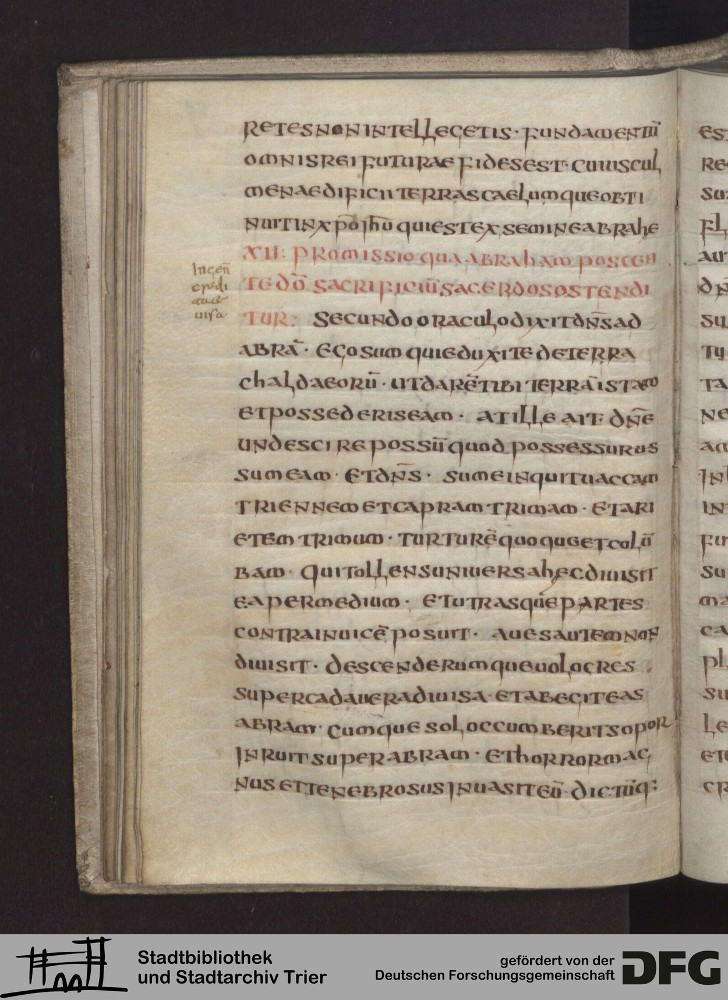 RETES NON INTELLEGETIS · FUNDAMENTŪ
OMNIS REI FUTURAE FIDES EST · CUIUSCUL
MEN AEDIFICII TERRAS CAELUMQUE OBTI
NUIT IN XPŌ IHŪ QUI EST EX SEMINE ABRAHE
XII · PROMISSIO QUA ABRAHAM POSCEN
TE DŌ SACRIFICIŪ SACERDOS OSTENDI
TUR : SECUNDO ORACULO DIXIT DN̄S AD
ABRĀ · EGO SUM QUI EDUXI TE DE TERRA
CHALDAEORŪ · UT DARĒ TIBI TERRĀ ISTAM
ET POSSEDERIS EAM · AT ILLE AIT DN̄E
UNDE SCIRE POSSŪ QUOD POSSESSURUS
SUM EAM · ET DN̄S · SUME INQUIT UACCAM
TRIENNEM ET CAPRAM TRIMAM · ET ARI
ETEM TRIMUM · TURTURĒ QUOQUE ET COLŪ
BAM · QUI TOLLENS UNIUERSA HEC DIUISIT
EA PER MEDIUM · ET UTRASQUE PARTES
CONTRA INUICĒ POSUIT · AUES AUTEM NON
DIUISIT · DESCENDERUMQUE UOLOCRES
SUPER CADAUERA DIUISA · ET ABEGIT EAS
ABRAM · CUMQUE SOL OCCUMBERIT SOPOR
INRUIT SUPER ABRAM · ET HORROR MAG
NUS ET TENEBROSUS INUASIT EŪ · DICTŪQ:
In gen̄
Stadtbibliothek
und Stadtarchiv Trier
gefördert von der
Deutschen Forschungsgemeinschaft
DFG